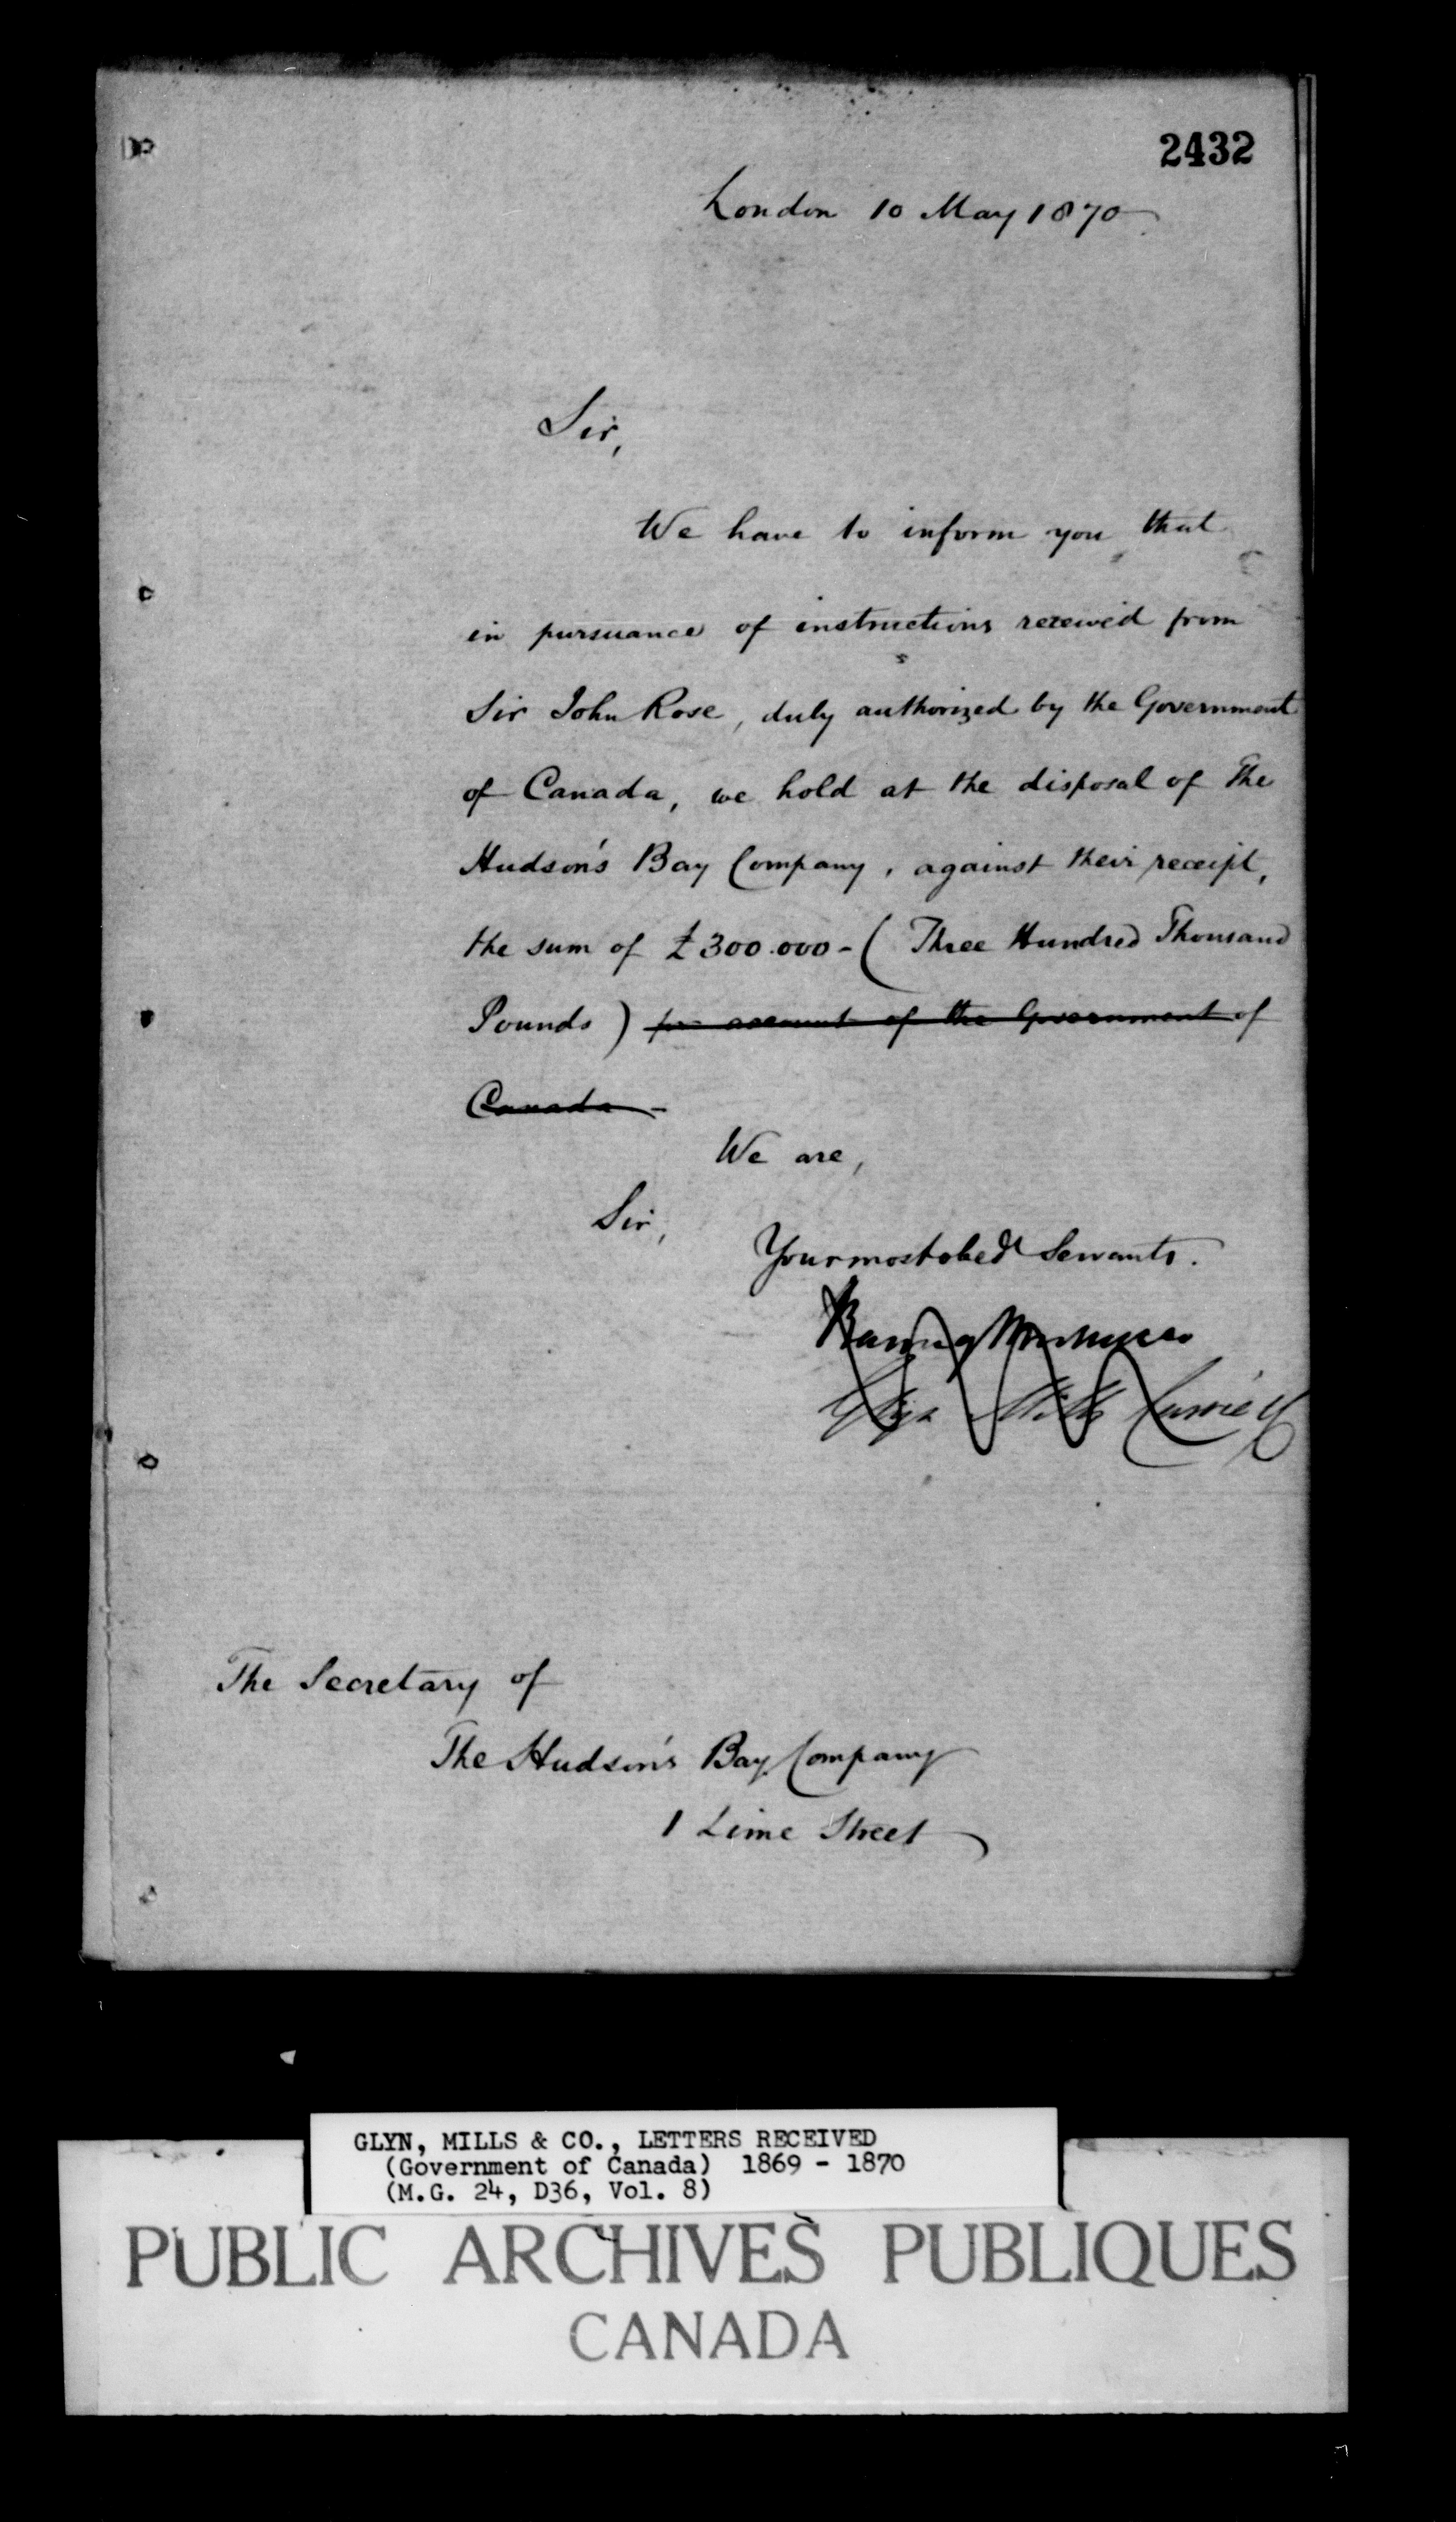 2432
London 10 May 1870
Sir,
We have to inform you that
in pursuance of instructions received from
Sir John Rose, duly authorized by the Government
of Canada, we hold at the disposal of The
Hudson's Bay Company, against their receipt,
the sum of £300.000 - (Three Hundred Thousand
Pounds) for account of the Government of
Canada -
We are,
Sir,
Your most obedt Servants.
Baring Brothers
Glyn Mills Currie &
The Secretary of
The Hudson's Bay Company
1 Lime Street
GLYN, MILLS & CO., LETTERS RECEIVED
(Government of Canada) 1869 - 1870
(M.G. 24, D36, Vol. 8)
PUBLIC ARCHIVES PUBLIQUES
CANADA